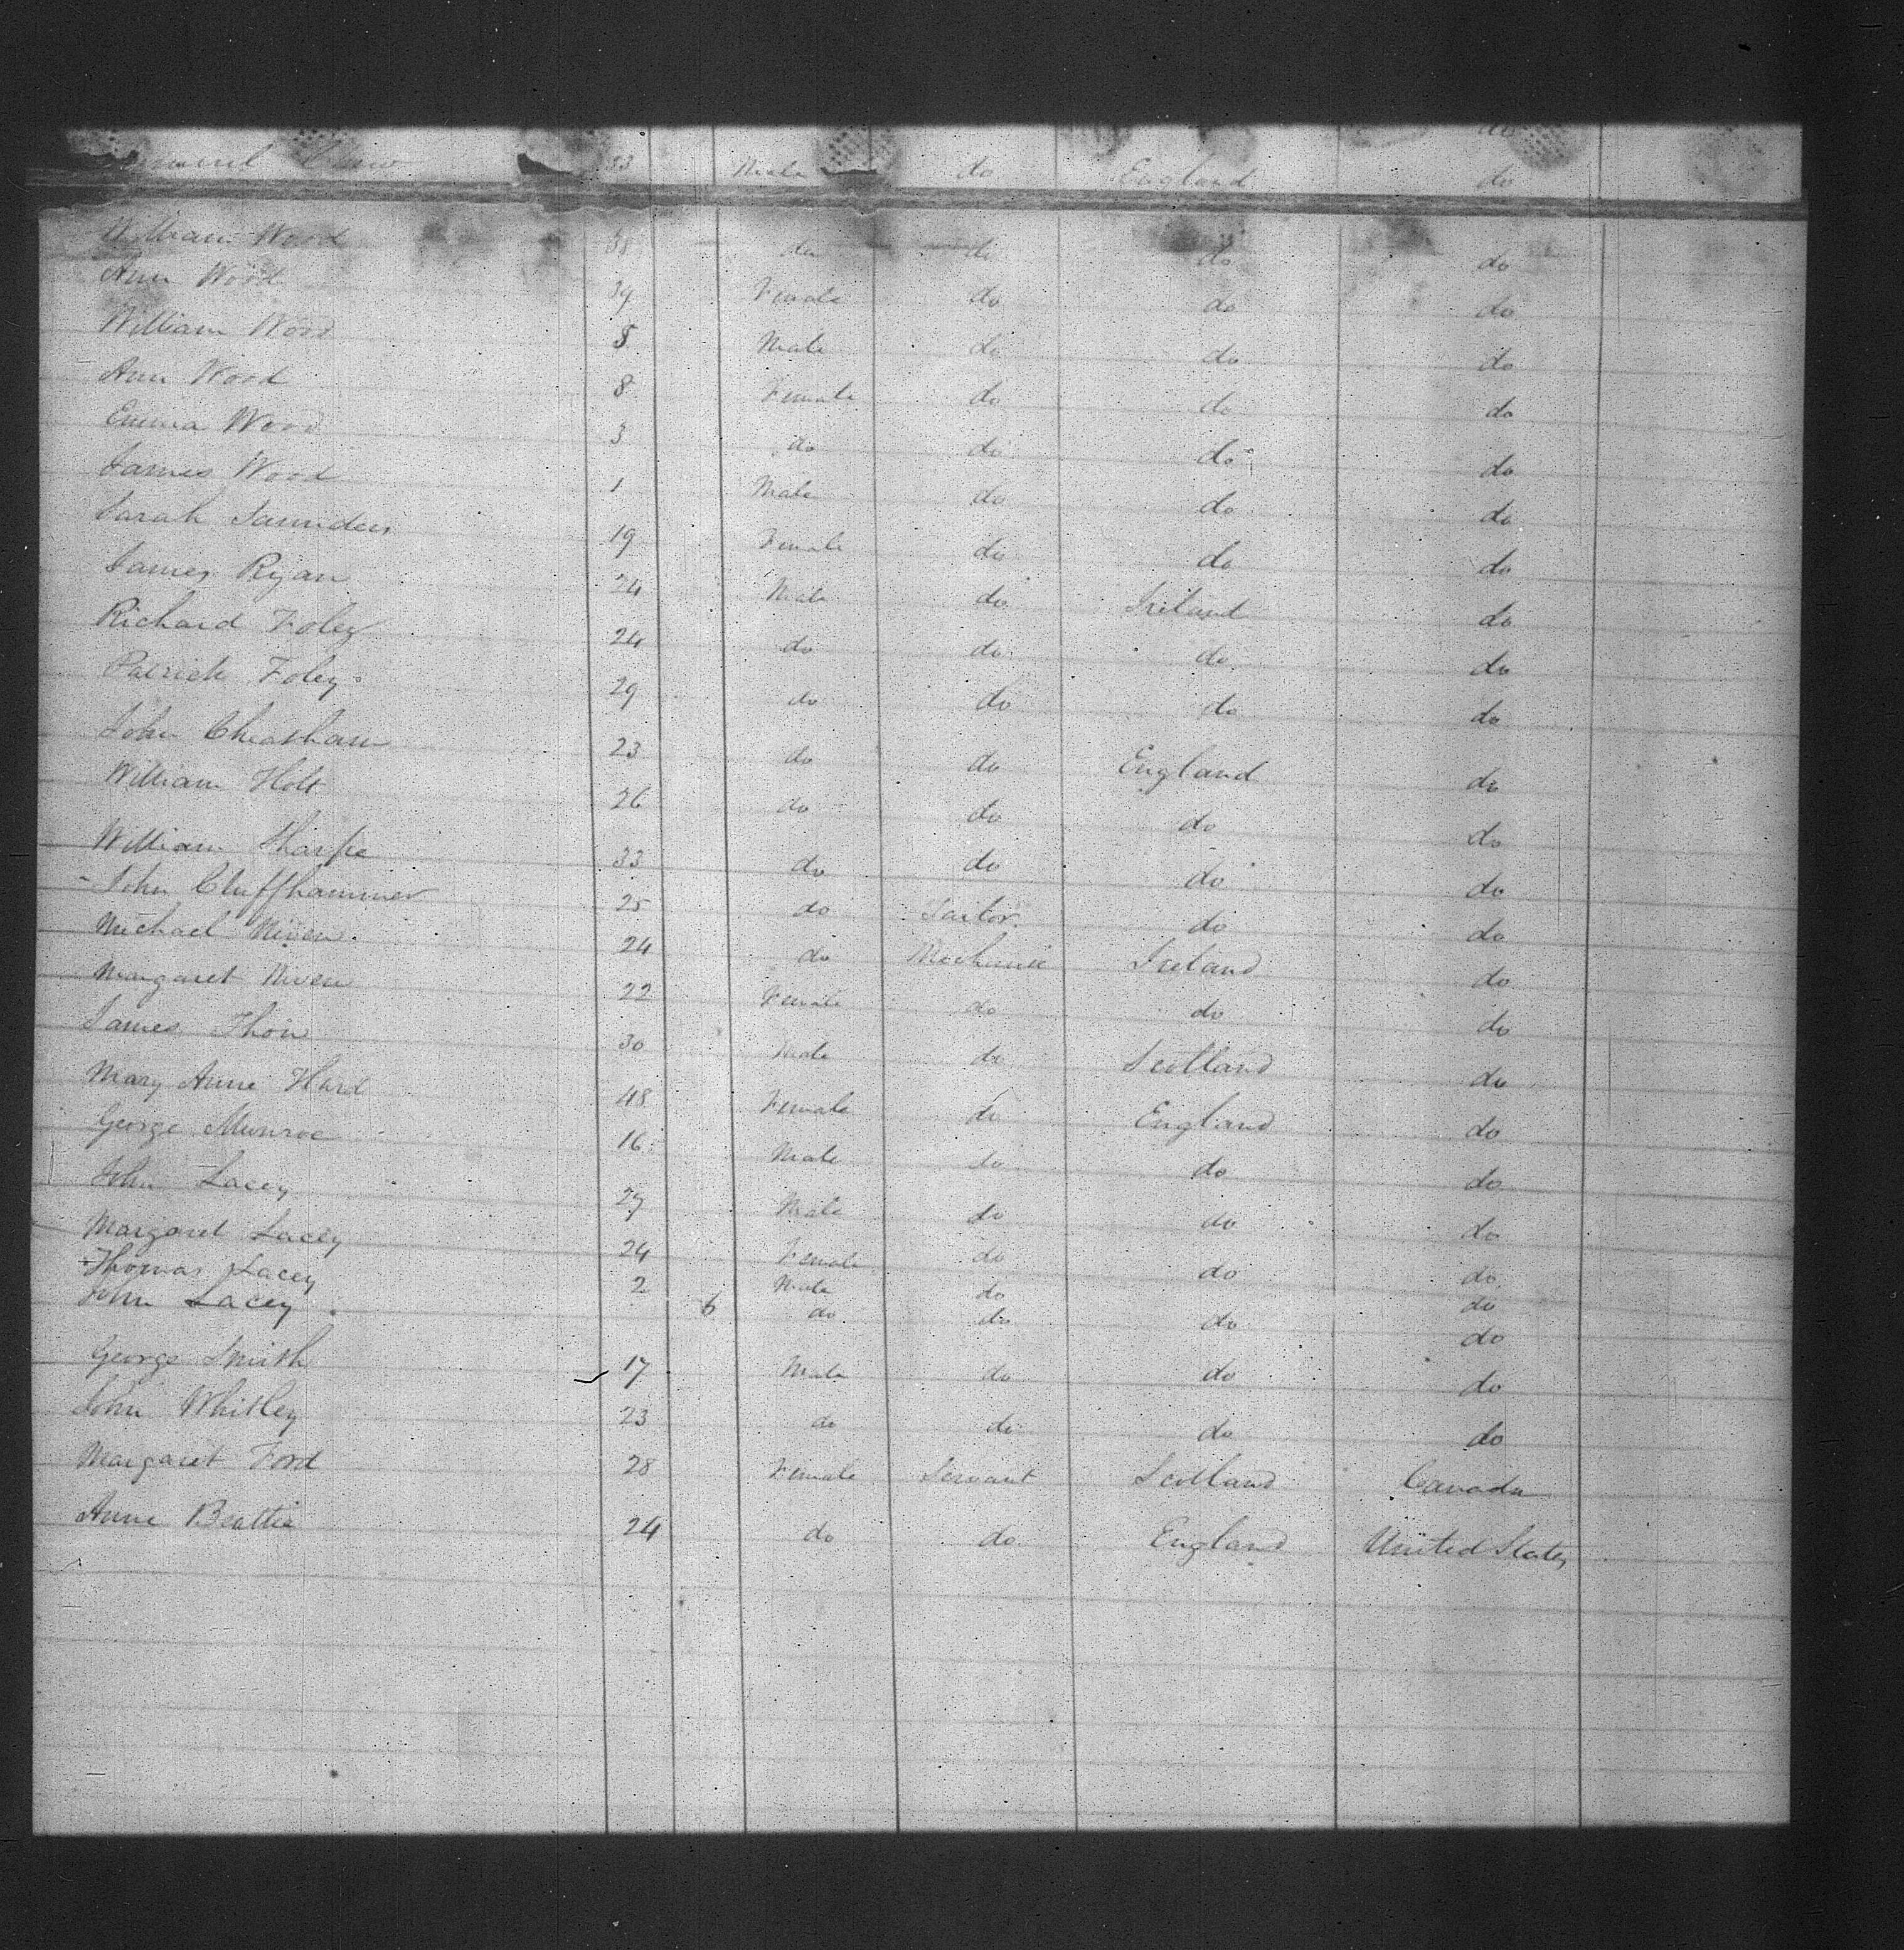 do
33 Male do England do
William Wood 38 do do do do
Ann Wood 39 Female do do do
William Wood 8 Male do do do
Ann Wood 8 Female do do do
Emma Wood 3 do do do do
James Wood 1 Male do do do
Sarah Saunders 19 Female do do do
James Ryan 24 Male do Ireland do
Richard Foley 24 do do do do
Patrick Foley 29 do do do do
John Cheatham 23 do do England do
William Holt 26 do do do do
William Sharpe 33 do do do do
John Cluffhammer 25 do Sailor do do
Michael Niven 24 do Mechanic Ireland do
Margaret Niven 22 Female do do do
James Thom 30 Male do Scotland do
Mary Anne Hard 48 Female do England do
George Munroe 16 Male do do do
John Lacey 27 Male do do do
Margaret Lacey 24 Female do do do
Thomas Lacey 2 Male do do
John Lacey 6 do do do do
George Smith 17 Male do do do
John Whitley 23 do do do do
Margaret Ford 28 Female Servant Scotland Canada
Anne Beattie 24 do do England United States